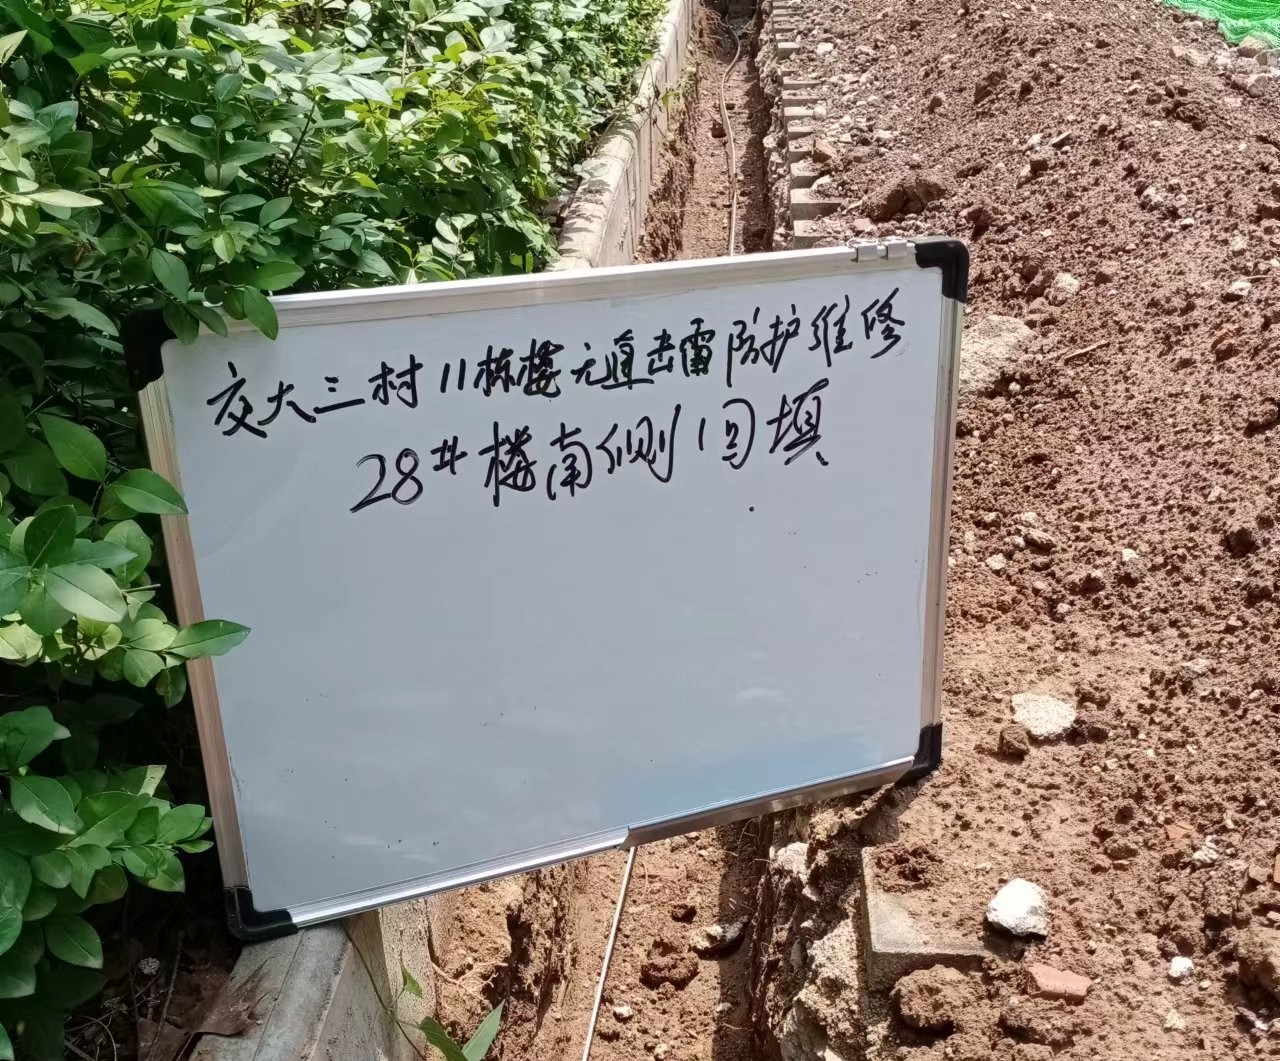 交大三村11栋楼无直击雷防护维修
28#楼南侧回填